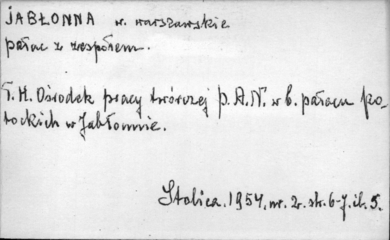 JABŁONNA w. warszawskie
pałac z zespołem.
T.H. Ośrodek pracy twórczej P.A.N. w b. pałacu Po-
tockich w Jabłonnie.
Stolica. 1954. nr. 2. str. 6-7. il. 5.